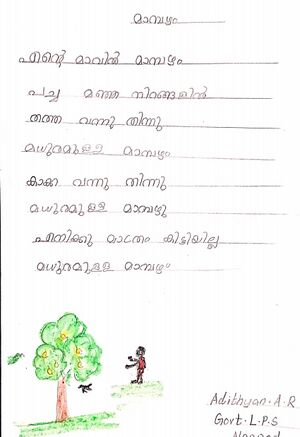 മാമ്പഴം
എന്റെ മാവിൽ മാമ്പഴം
പച്ച മഞ്ഞ നിറങ്ങളിൽ
തത്ത വന്നു തിന്നു
മധുരമുള്ള മാമ്പഴം
കാക്ക വന്നു തിന്നു
മധുരമുള്ള മാമ്പഴം
എനിക്കു മാത്രം കിട്ടിയില്ല
മധുരമുള്ള മാമ്പഴം
Adithyan. A. R
Govt. L. P. S